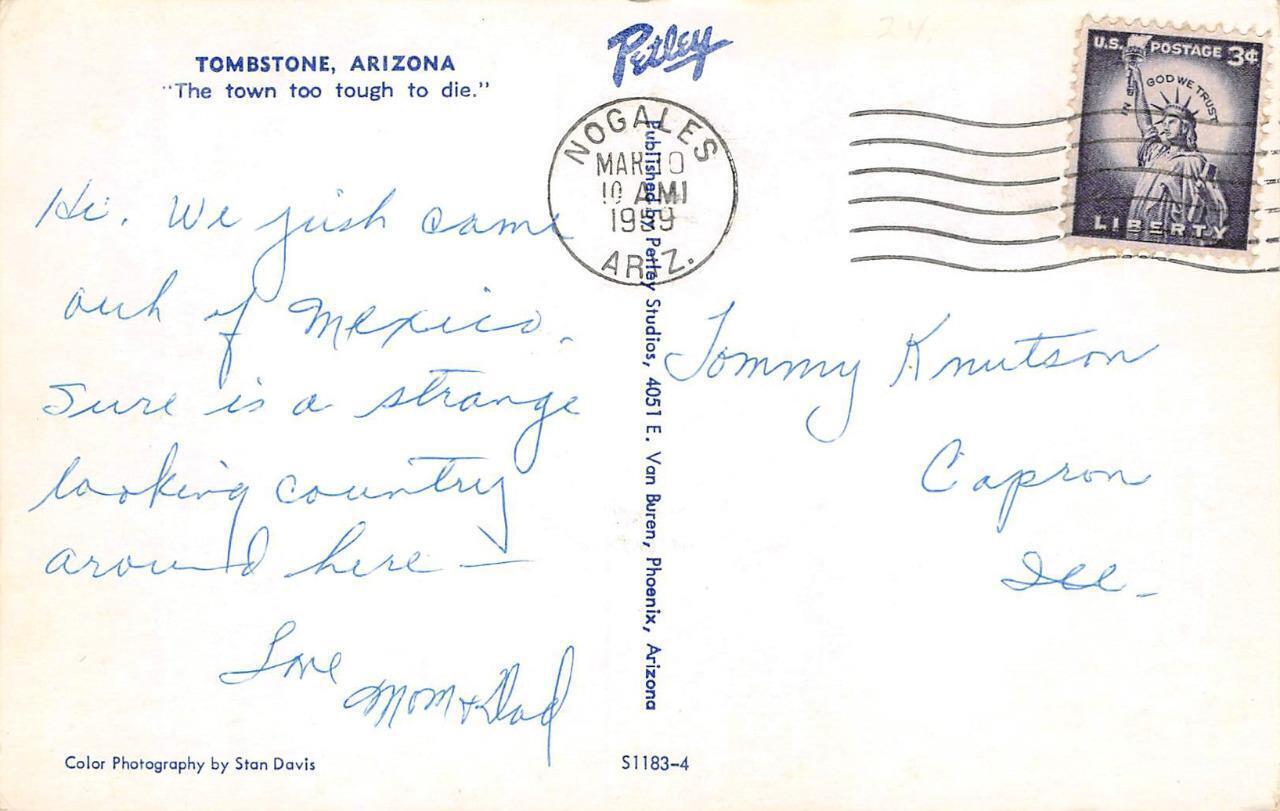 TOMBSTONE, ARIZONA
"The town too tough to die."
Petley
24.
U.S. POSTAGE 3¢
IN GOD WE TRUST
LIBERTY
NOGALES
MAR 10
10 AM
1959
ARIZ.
Hi. We just came
out of Mexico.
Sure is a strange
looking country
around here —
Love
Mom + Dad
Published by Petley Studios, 4051 E. Van Buren, Phoenix, Arizona
Tommy Knutson
Capron
Ill.
Color Photography by Stan Davis
S1183-4